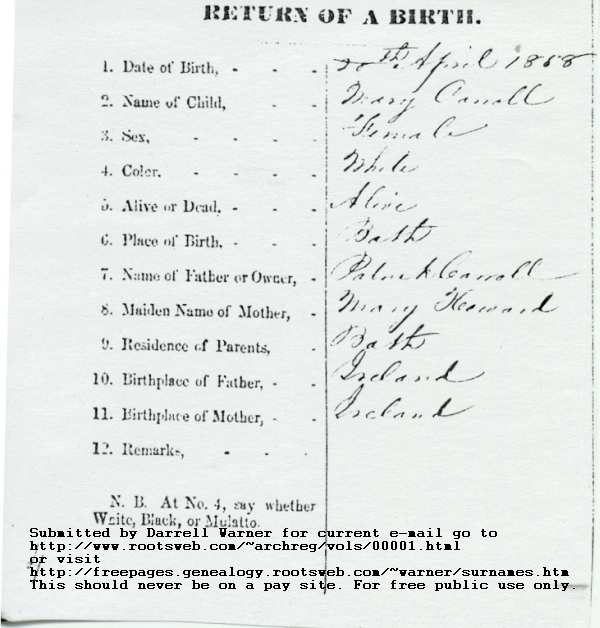 RETURN OF A BIRTH.
1. Date of Birth, - - - 20th April 1858
2. Name of Child, - - Mary Carroll
3. Sex, - - - - Female
4. Color. - - - - White
5. Alive or Dead, - - - Alive
6. Place of Birth, - - - Bath
7. Name of Father or Owner, - Patrick Carroll
8. Maiden Name of Mother, - Mary Howard
9. Residence of Parents, - Bath
10. Birthplace of Father, - - Ireland
11. Birthplace of Mother, - - Ireland
12. Remarks, - - -
N. B. At No. 4, say whether
White, Black, or Mulatto.
Submitted by Darrell Warner for current e-mail go to
http://www.rootsweb.com/~archreg/vols/00001.html
or visit
http://freepages.genealogy.rootsweb.com/~warner/surnames.htm
This should never be on a pay site. For free public use only.